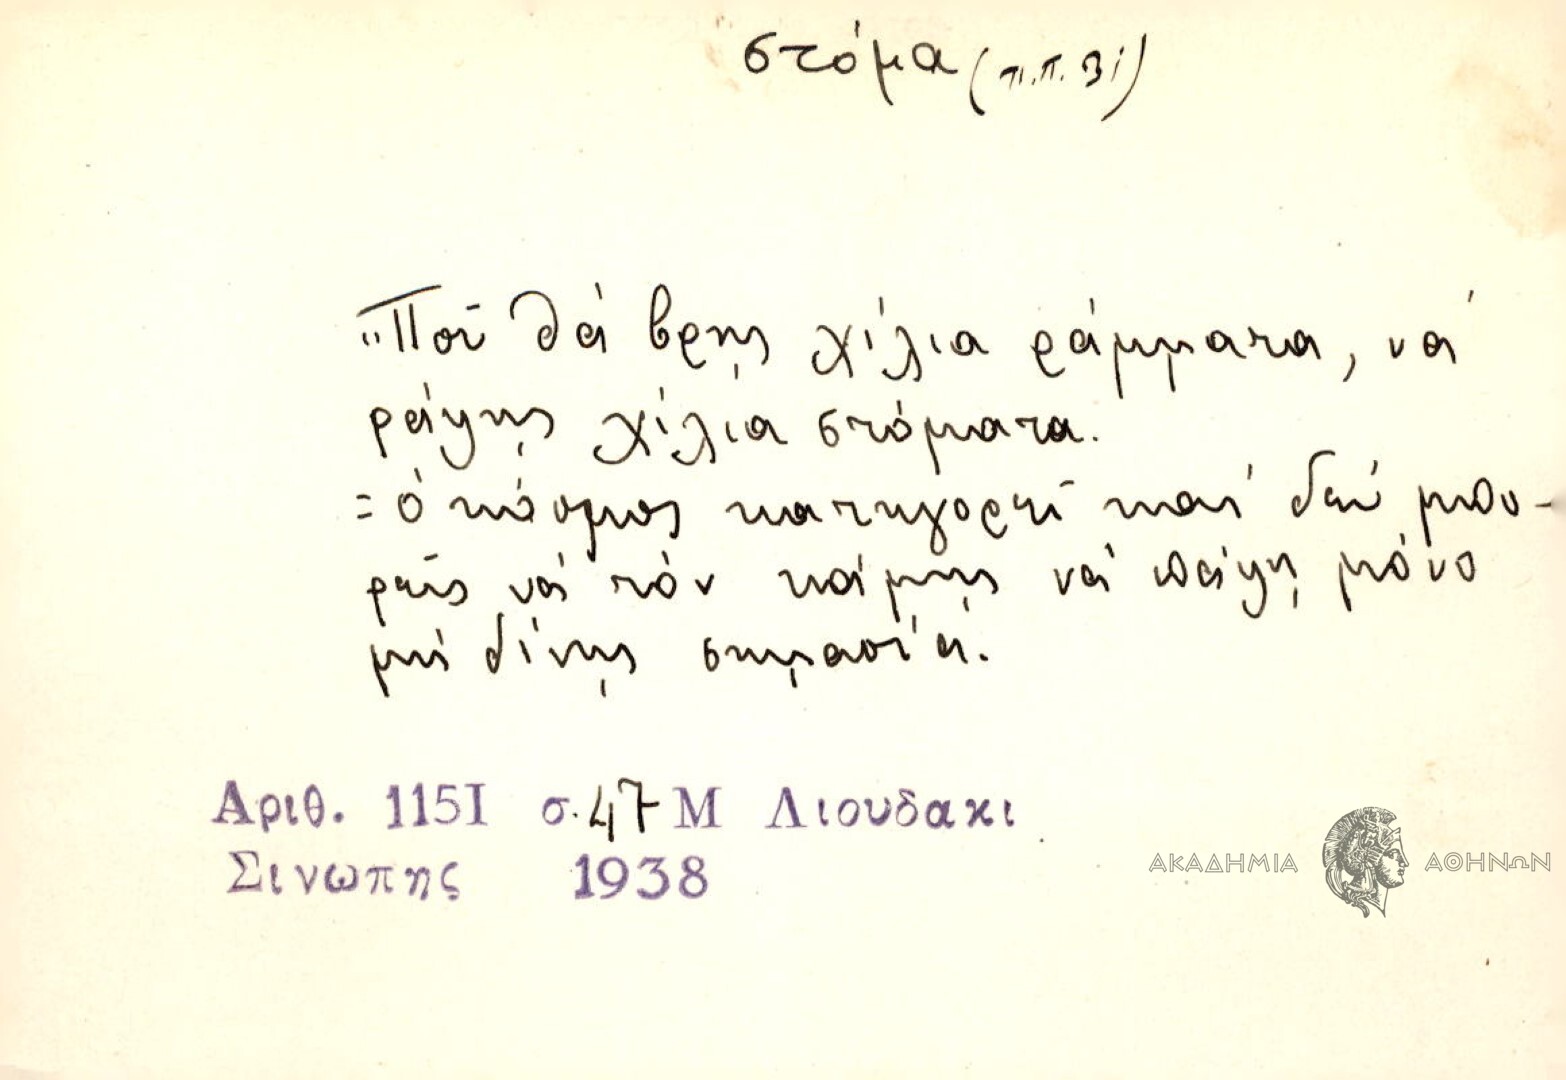 στόμα (π.π. 31)
"Ποῦ θά βρῃς χίλια ράμματα, νά
ράψῃς χίλια στόματα.
= ὁ κόσμος κατηγορεῖ καί δέν μπο-
ρεῖς νά τόν κάμῃς νά πάψῃ μόνο
μή δίνῃς σημασία.
Αριθ. 115I σ. 47 Μ Λιουδακι
Σινωπης 1938
ΑΚΑΔΗΜΙΑ ΑΘΗΝΩΝ